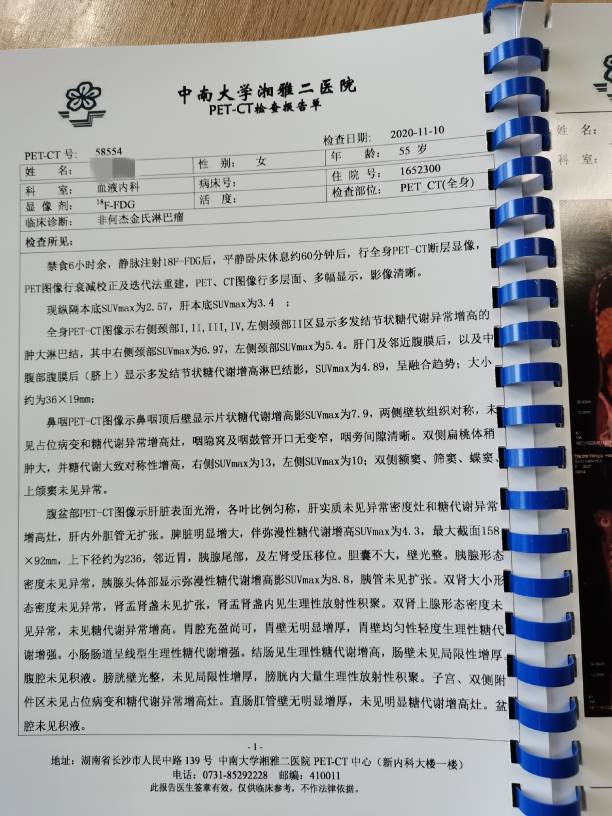 中南大学湘雅二医院
PET-CT检查报告单
检查日期: 2020-11-10
PET-CT 号: 58554
姓 名: 性 别: 女 年 龄: 55 岁
科 室: 血液内科 病床号: 住 院 号: 1652300
显 像 剂: 18F-FDG 活 度: 检查部位: PET_CT(全身)
临床诊断: 非何杰金氏淋巴瘤
检查所见:
禁食6小时余，静脉注射18F-FDG后，平静卧床休息约60分钟后，行全身PET-CT断层显像，
PET图像行衰减校正及迭代法重建，PET、CT图像行多层面、多幅显示，影像清晰。
现纵隔本底SUVmax为2.57，肝本底SUVmax为3.4 ；
全身PET-CT图像示右侧颈部I,II,III,IV,左侧颈部II区显示多发结节状糖代谢异常增高的
肿大淋巴结，其中右侧颈部SUVmax为6.97，左侧颈部SUVmax为5.4。肝门及邻近腹膜后，以及中
腹部腹膜后（脐上）显示多发结节状糖代谢增高淋巴结影，SUVmax为4.89，呈融合趋势；大小
约为36×19mm；
鼻咽PET-CT图像示鼻咽顶后壁显示片状糖代谢增高影SUVmax为7.9，两侧壁软组织对称，未
见占位病变和糖代谢异常增高灶，咽隐窝及咽鼓管开口无变窄，咽旁间隙清晰。双侧扁桃体稍
肿大，并糖代谢大致对称性增高，右侧SUVmax为13，左侧SUVmax为10；双侧额窦、筛窦、蝶窦、
上颌窦未见异常。
腹盆部PET-CT图像示肝脏表面光滑，各叶比例匀称，肝实质未见异常密度灶和糖代谢异常
增高灶，肝内外胆管无扩张。脾脏明显增大，伴弥漫性糖代谢增高SUVmax为4.3，最大截面158
×92mm，上下径约为236，邻近胃，胰腺尾部，及左肾受压移位。胆囊不大，壁光整。胰腺形态
密度未见异常，胰腺头体部显示弥漫性糖代谢增高影SUVmax为8.8，胰管未见扩张。双肾大小形
态密度未见异常，肾盂肾盏未见扩张，肾盂肾盏内见生理性放射性积聚。双肾上腺形态密度未
见异常，未见糖代谢异常增高。胃腔充盈尚可，胃壁无明显增厚，胃壁均匀性轻度生理性糖代
谢增强。小肠肠道呈线型生理性糖代谢增强。结肠见生理性糖代谢增高，肠壁未见局限性增厚
腹腔未见积液。膀胱壁光整，未见局限性增厚，膀胱内大量生理性放射性积聚。子宫、双侧附
件区未见占位病变和糖代谢异常增高灶。直肠肛管壁无明显增厚，未见明显糖代谢增高灶。盆
腔未见积液。
- 1 -
地址: 湖南省长沙市人民中路 139 号 中南大学湘雅二医院 PET-CT 中心（新内科大楼一楼）
电话: 0731-85292228 邮编: 410011
此报告医生签章有效，仅供临床参考，不作法律依据。
姓 名:
科 室: